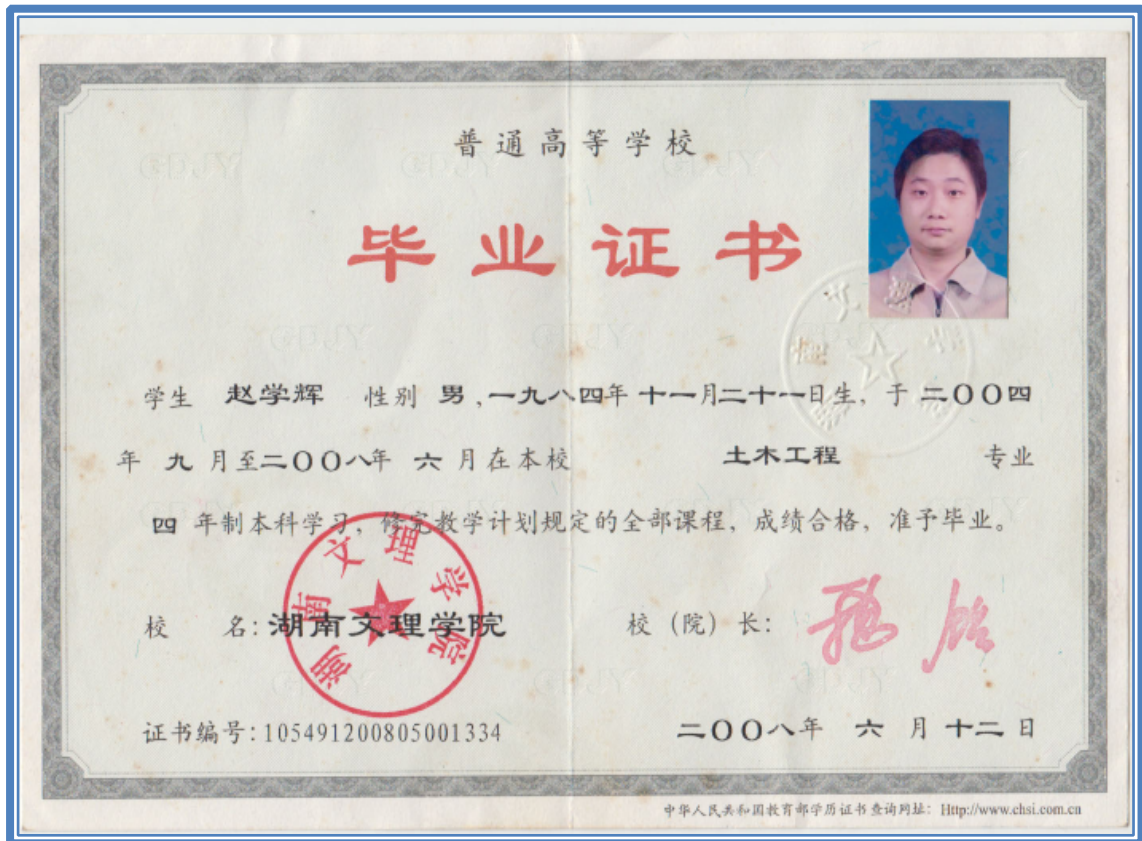 普通高等学校
毕业证书
学生 赵学辉 性别 男,一九八四年 十一月二十一日生, 于 二〇〇四
年 九 月至二〇〇八年 六 月在本校 土木工程 专业
四 年制本科学习, 修完教学计划规定的全部课程, 成绩合格, 准予毕业。
湖南文理学院
校 名: 湖南文理学院 校 (院) 长:
证书编号: 105491200805001334 二〇〇八年 六 月 十二 日
中华人民共和国教育部学历证书查询网址: Http://www.chsi.com.cn